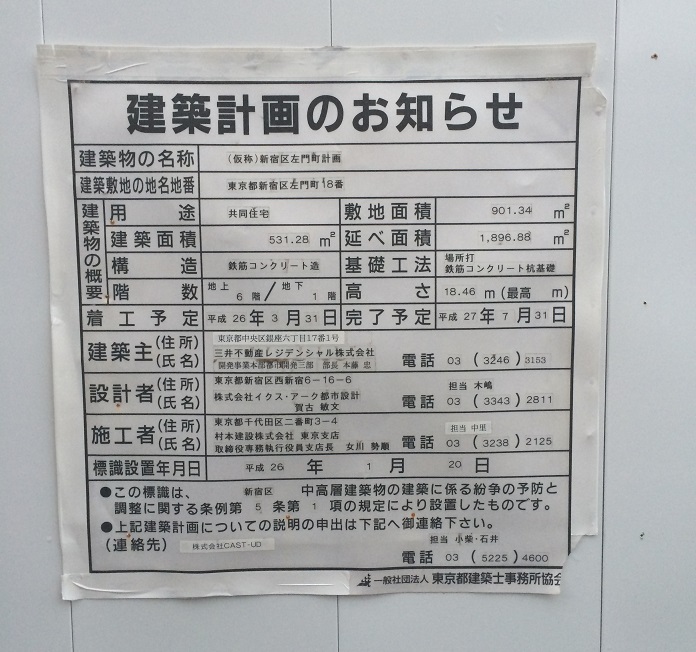 建築計画のお知らせ
建築物の名称 (仮称)新宿区左門町計画
建築敷地の地名地番 東京都新宿区左門町18番
建築物の概要
用途 共同住宅 敷地面積 901.34 m²
建築面積 531.28 m² 延べ面積 1,896.88 m²
構造 鉄筋コンクリート造 基礎工法 場所打 鉄筋コンクリート杭基礎
階数 地上 6階/地下 1階 高さ 18.46 m(最高 m)
着工予定 平成26年3月31日 完了予定 平成27年7月31日
東京都中央区銀座六丁目17番1号
建築主(住所)(氏名) 三井不動産レジデンシャル株式会社 電話 03 (3246)3153
開発事業本部都市開発三部 部長 本藤 忠
東京都新宿区西新宿6-16-6 担当 木嶋
設計者(住所)(氏名) 株式会社イクス・アーク都市設計 電話 03 (3343)2811
賀古 敏文
東京都千代田区二番町3-4 担当 中里
施工者(住所)(氏名) 村本建設株式会社 東京支店 電話 03 (3238)2125
取締役専務執行役員支店長 女川 勢順
標識設置年月日 平成26年1月20日
●この標識は、新宿区 中高層建築物の建築に係る紛争の予防と
調整に関する条例第5条第1項の規定により設置したものです。
●上記建築計画についての説明の申出は下記へ御連絡下さい。
(連絡先) 株式会社CAST-UD 担当 小柴・石井
電話 03 (5225)4600
一般社団法人 東京都建築士事務所協会